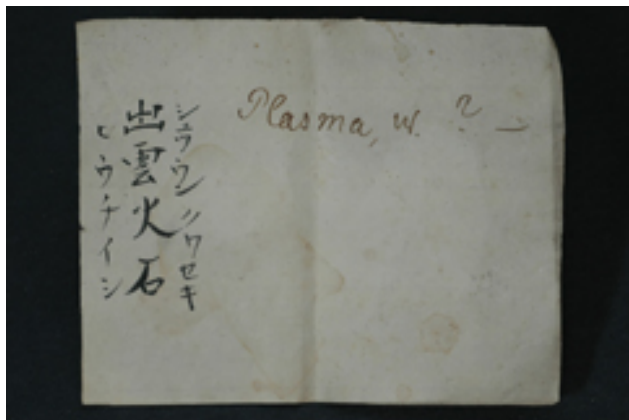 Plasma, w. ? —
シュウウンノワセキ
出雲火石
ヒウチイシ